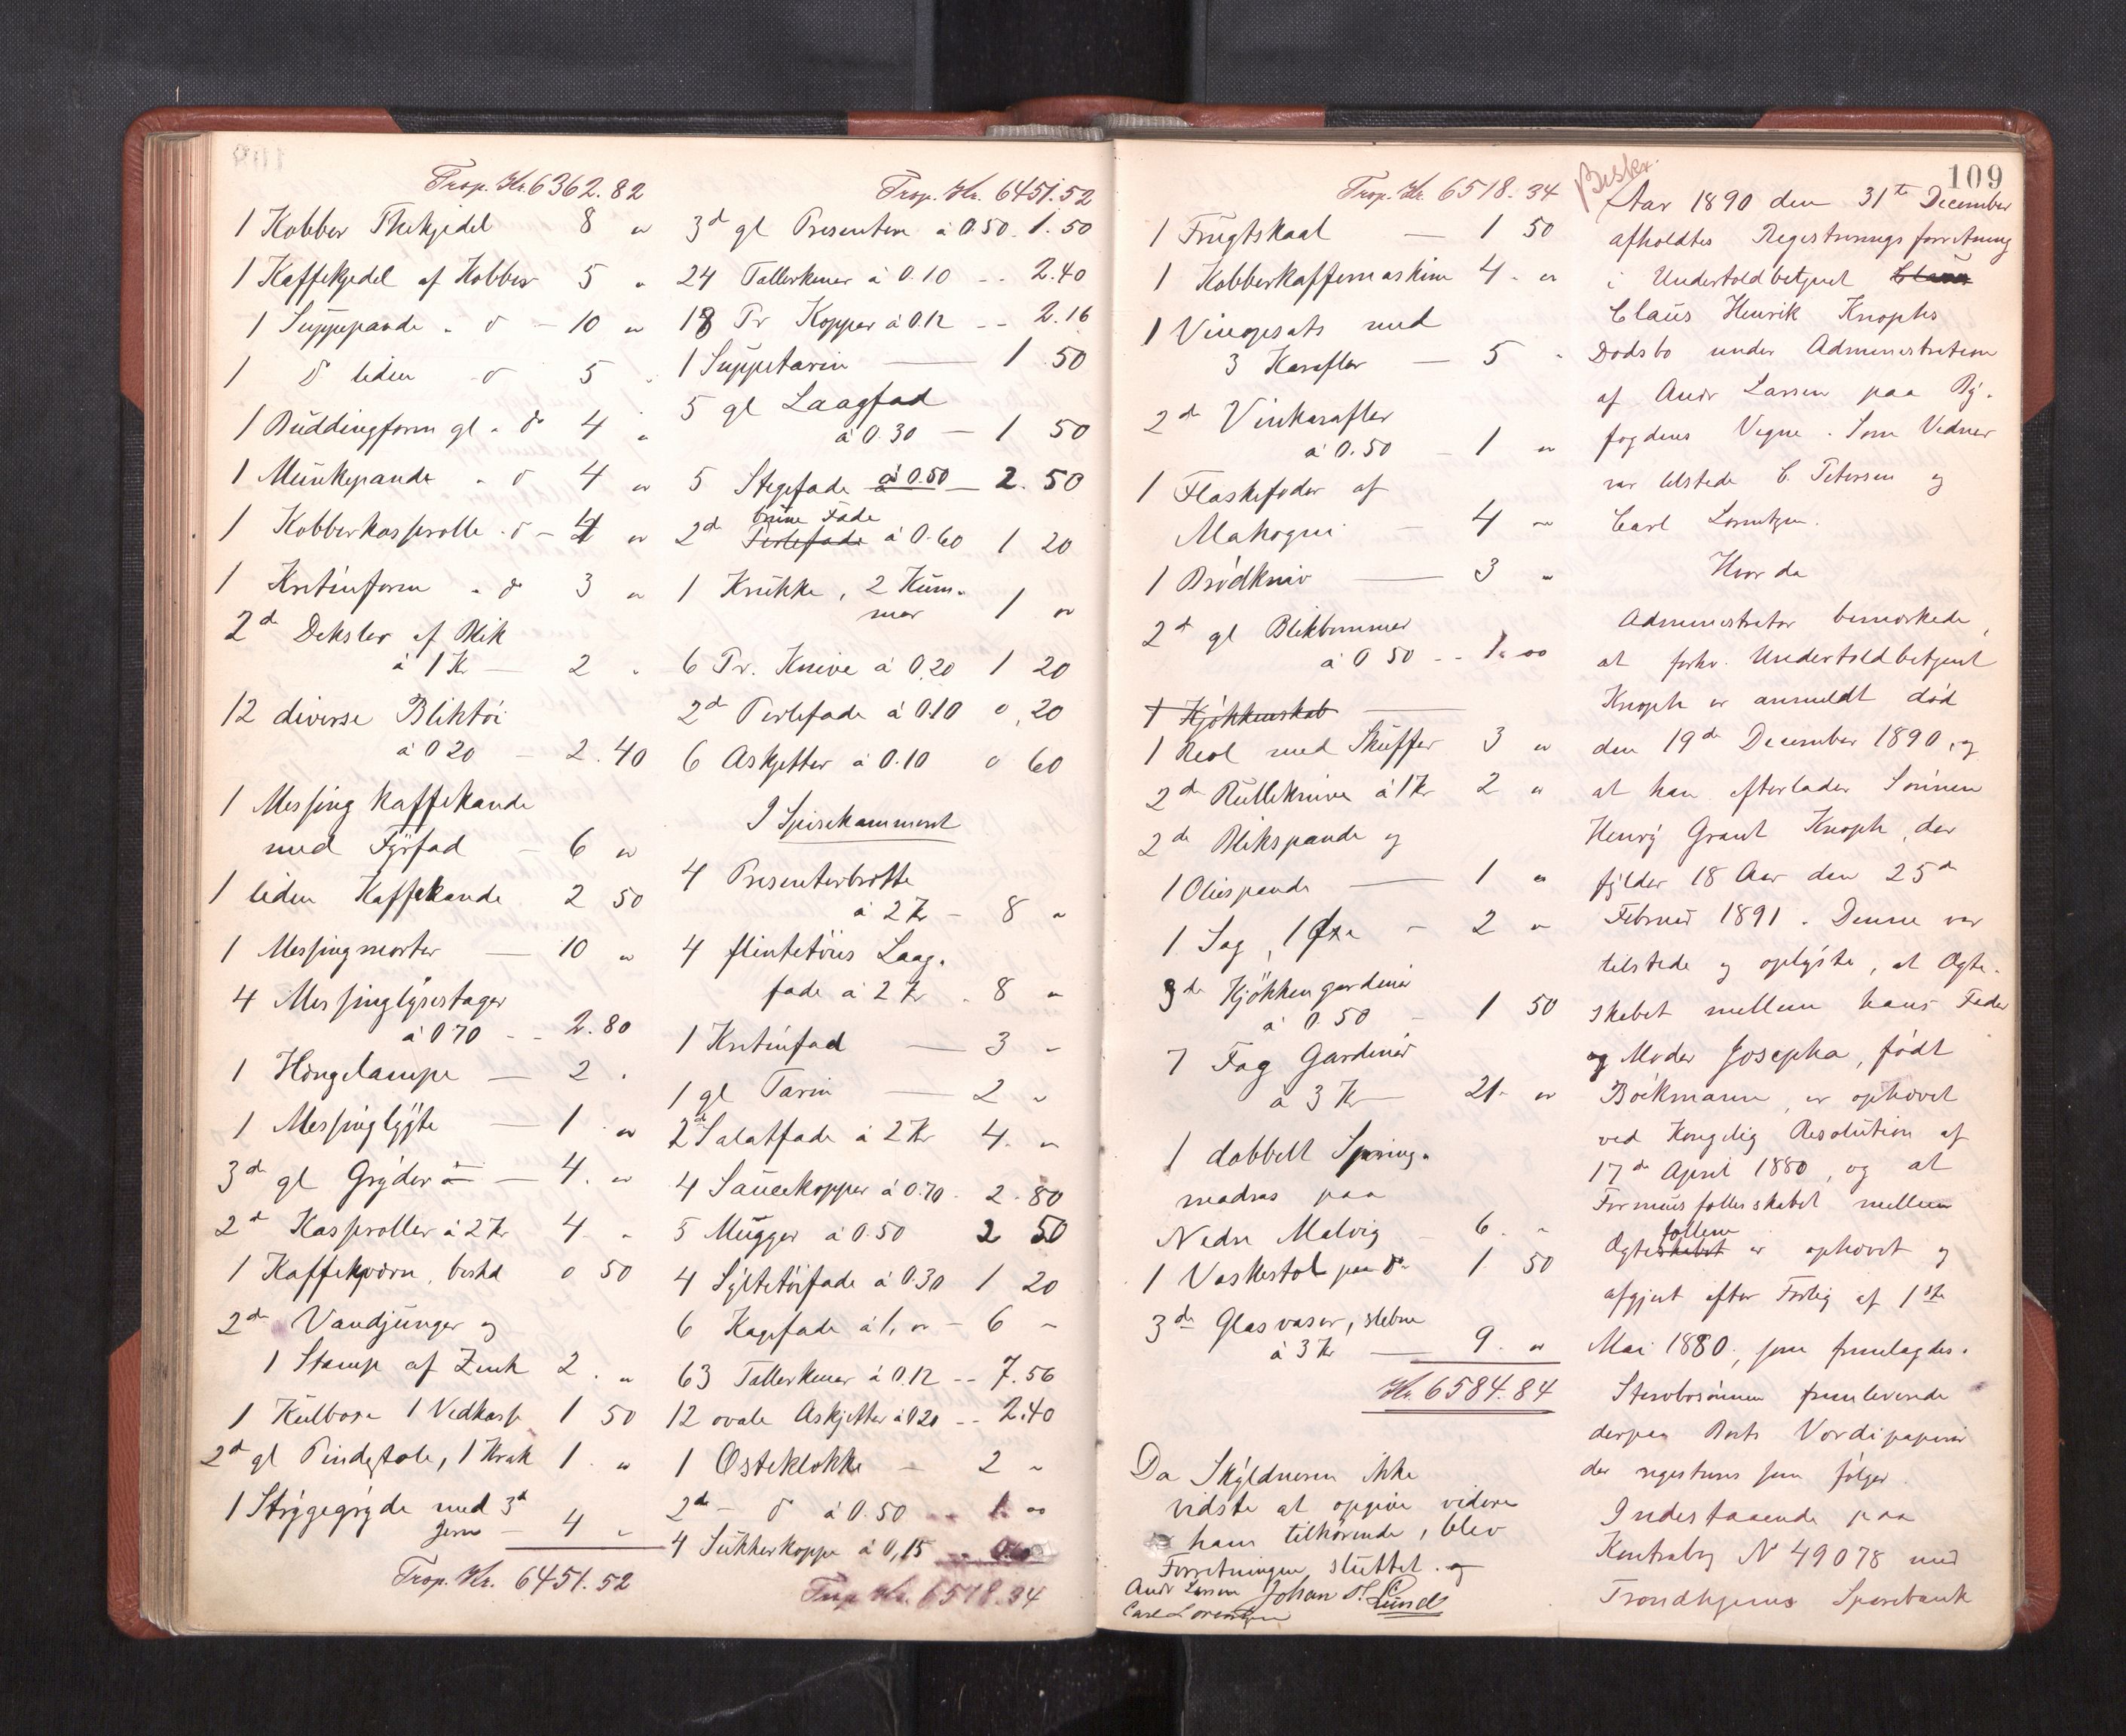 Trsp. Kr. 6362.82
1 Kobber Thekjedel 8 "
1 Kaffekjedel af Kobber 5 "
1 Suppepande " do – 10 "
1 do liden do 5 "
1 Buddingform gl " do 4 "
1 Munkepande " do 4 "
1 Kobberkasserolle " do – 4 "
1 Kretinform " do 3 "
2de Deksler af Blik
à 1 Kr – 2 "
12 diverse Bliktöi
à 0 20 – 2.40
1 Messing kaffekande
med Fyrfad – 6 "
1 liden Kaffekande 2 50
1 Messingmorter – 10 "
4 Messinglysestager
à 0 70 – 2.80
1 Hængelampe – 2 "
1 Messinglygte – 1 "
3de gl Gryder – 4. "
2de Kasseroller à 2 Kr 4 "
1 Kaffekværn, beskd 0 50
2de Vandjunger og
1 Stamp af Zink 2. "
1 Kulboxe 1 Vedkasse 1 50
2de gl Pindestole, 1 Krak 1. "
1 Strygegryde med 3de
Jern – 4 "
Trsp. Kr. 6451.52
Trsp. Kr. 6451.52
3de gl Presentere à 0.50 - 1.50
24 Tallerkener à 0.10 - - 2.40
18 Pr Kopper à 0.12 - - 2.16
1 Suppetarin — 1.50
5 gl Laagfad
à 0.30 – 1 50
5 Stegefade à 0.50 – 2.50
brune Fade
2de Perlefade à 0.60 1 20
1 Krukke, 2 Kum-
mer 1 "
6 Pr. Knive à 0,20 1 20
2de Perlefade à 0.10 0,20
6 Askjetter à 0.10 0 60
I Spisekammeret
4 Presenterbrette
à 2 Kr – 8 "
4 flintetöies Laag-
fade à 2 Kr - 8 "
1 Kretinfad — 3 "
1 gl Tarin — 2 "
2de Salatfade à 2 Kr 4. "
4 Saucekopper à 0.70 - 2.80
5 Mugger à 0.50 2 50
4 Syltetöifade à 0.30 1 20
6 Kagefade à 1, " – 6 "
63 Tallerkener à 0.12 - - 7.56
12 ovale Askjetter à 0 20 - - 2.40
1 Osteklokke – 2 "
2de – do à 0.50 - - 1. "
4 Sukkerkoppe à 0,15 - - 0.60
Trsp Kr. 6518.34
Trsp. Kr. 6518.34
1 Frugtskaal — 1 50
1 Kobberkaffemaskine 4. "
1 Vinopsats med
3 Karafler – 5 "
2de Vinkarafler
à 0.50 – 1 "
1 Flaskefoder af
Mahogni – 4 "
1 Brödkniv — 3 "
2de gl Blikbommer
à 0 50 - - 1. "
1 Kjökkenskab —
1 Reol med Skuffer 3 "
2de Rulleknive à 1 Kr 2 "
2de Blikspande og
1 Oliespande — 1 "
1 Sag, 1 Øxe – 2 "
3de Kjökkengardiner
à 0.50 – 1 50
7 Fag Gardiner
à 3 Kr – 21. "
1 dobbelt Spring-
madras paa
Nedre Malvig 6. "
1 Vaskestol paa do 1 50
3de Glasvaser, slebne
à 3 Kr — 9. "
Kr. 6584.84
Da Skyldneren ikke
vidste at opgive videre
ham tilhørende, blev
Forretningen sluttet. og
Andr Larsen Johan H. Lund
Carl Lorentzen
Beskr.
109
Aar 1890 den 31te December
afholdtes Registreringsforretning
i Undertoldbetjent Claus
Claus Henrik Knophs
Dödsbo under Administration
af Andr Larsen paa By-
fogdens Vegne. Som Vidner
var tilstede C. Petersen og
Carl Lorentzen.
Hvor da
Administrator bemærkede,
at forhv. Undertoldbetjent
Knoph er anmeldt död
den 19de December 1890, og
at han efterlader Sönnen
Henry Grant Knoph, der
fylder 18 Aar den 25de
Februar 1891. Denne var
tilstede og oplyste, at Ægte-
skabet mellem hans Fader
og Moder Josepha, födt
Böckmann, er ophævet
ved Kongelig Resolution af
17de April 1880, og at
Formuesfællesskabet mellem
fællene
Ægteskabet er ophævet og
afgjort efter Forlig af 1ste
Mai 1880, som fremlagdes.
Stervbosönnen fremleverede
derpaa Boets Værdipapirer
der registreres som fölger.
Indestaaende paa
Kontrabog No 49078 med
Trondhjems Sparebank